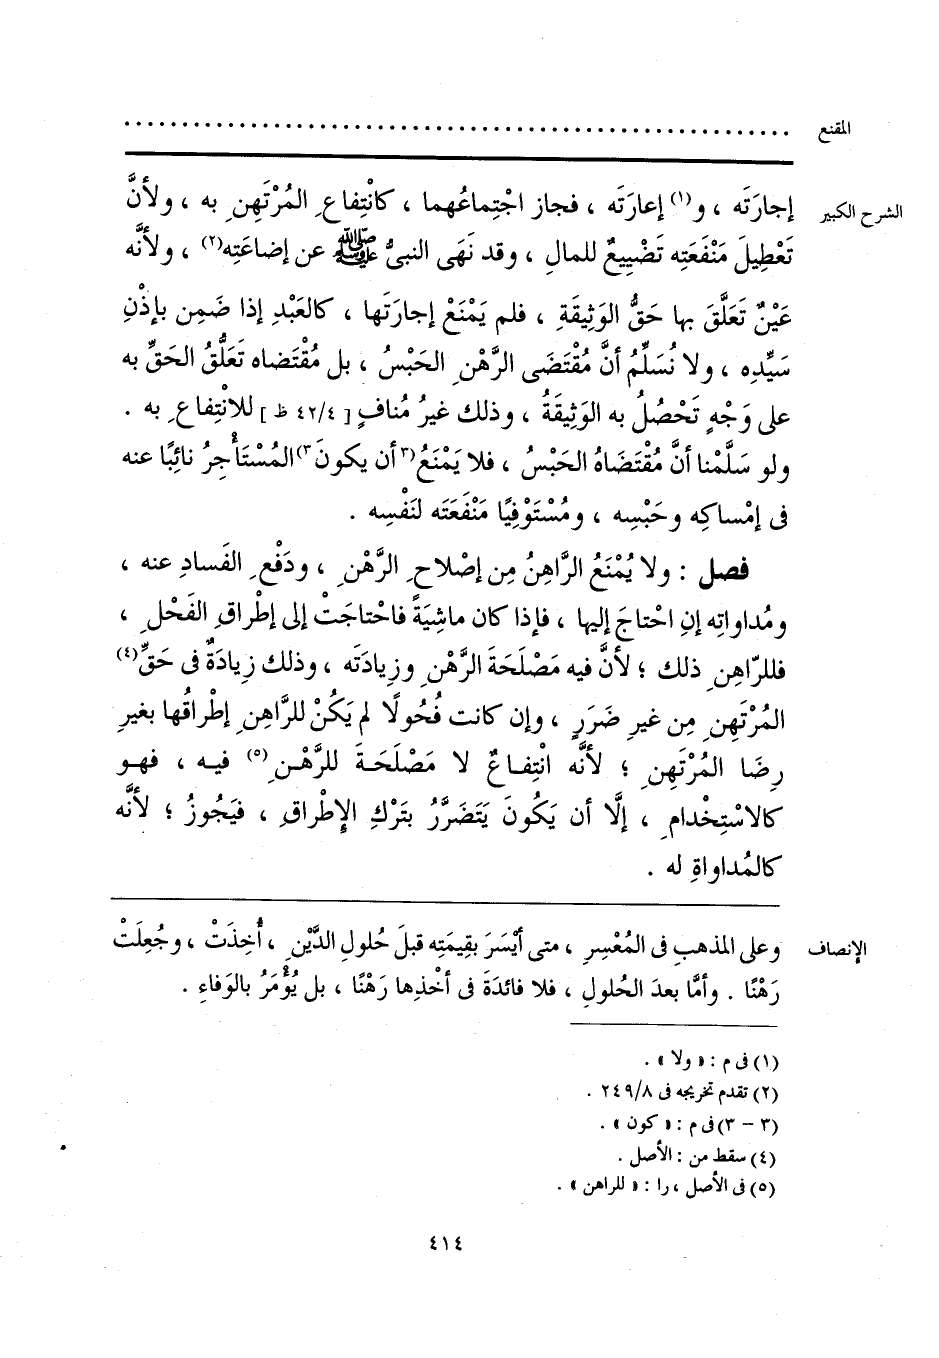 المقنع ........................................................
الشرح الكبير إجارَتَه ، و(١) إعارَتَه ، فجاز اجْتِماعُهما ، كانْتِفاعِ المُرْتَهِنِ به ، ولأنَّ
تَعْطِيلَ مَنْفَعَتِه تَضْيِيعٌ للمالِ ، وقد نَهَى النبىُّ ﷺ عن إضاعَتِه(٢) ، ولأنَّه
عَيْنٌ تَعَلَّقَ بها حَقُّ الوَثِيقَةِ ، فلم يَمْنَعْ إجارَتَها ، كالعَبْدِ إذا ضَمِن بإذْنِ
سَيِّدِه ، ولا نُسَلِّمُ أنَّ مُقْتَضَى الرَّهْنِ الحَبْسُ ، بل مُقْتَضاه تَعَلُّقُ الحَقِّ به
على وَجْهٍ تَحْصُلُ به الوَثِيقَةُ ، وذلك غيرُ مُنافٍ [ ٤/ ٤٢ ظ ] للانْتِفاعِ به .
ولو سَلَّمْنا أنَّ مُقْتَضاهُ الحَبْسُ ، فلا يَمْنَعُ (٣أن يكونَ٣) المُسْتَأْجِرُ نائِبًا عنه
فى إمْساكِه وحَبْسِه ، ومُسْتَوْفِيًا مَنْفَعَتَه لنَفْسِه .
فصل : ولا يُمْنَعُ الرَّاهِنُ مِن إصْلاحِ الرَّهْنِ ، ودَفْعِ الفَسادِ عنه ،
ومُداواتِه إنِ احْتاجَ إليها ، فإذا كان ماشِيَةً فاحْتاجَتْ إلى إطْراقِ الفَحْلِ ،
فللرّاهِنِ ذلك ؛ لأنَّ فيه مَصْلَحَةَ الرَّهْنِ وزِيادَتَه ، وذلك زِيادَةٌ فى حَقِّ(٤)
المُرْتَهِنِ مِن غيرِ ضَرَرٍ ، وإن كانت فُحُولًا لم يَكُنْ للرَّاهِنِ إطْراقُها بغيرِ
رِضَا المُرْتَهِنِ ؛ لأنَّه انْتِفاعٌ لا مَصْلَحَةَ للرَّهْنِ(٥) فيه ، فهو
كالاسْتِخْدامِ ، إلَّا أن يَكُونَ يَتَضَرَّرُ بتَرْكِ الإِطْراقِ ، فيَجُوزُ ؛ لأنَّه
كالمُداواةِ له .
الإنصاف وعلى المذهبِ فى المُعْسِرِ ، متى أيْسَرَ بقِيمَتِه قبلَ حُلولِ الدَّيْنِ ، أُخِذَتْ ، وجُعِلَتْ
رَهْنًا . وأمَّا بعدَ الحُلولِ ، فلا فائدَةَ فى أخْذِها رَهْنًا ، بل يُؤْمَرُ بالوَفاءِ .
(١) فى م : « ولا » .
(٢) تقدم تخريجه فى ٨/ ٢٤٩ .
(٣ - ٣) فى م : « كون » .
(٤) سقط من : الأصل .
(٥) فى الأصل ، را : « للراهن » .
٤١٤